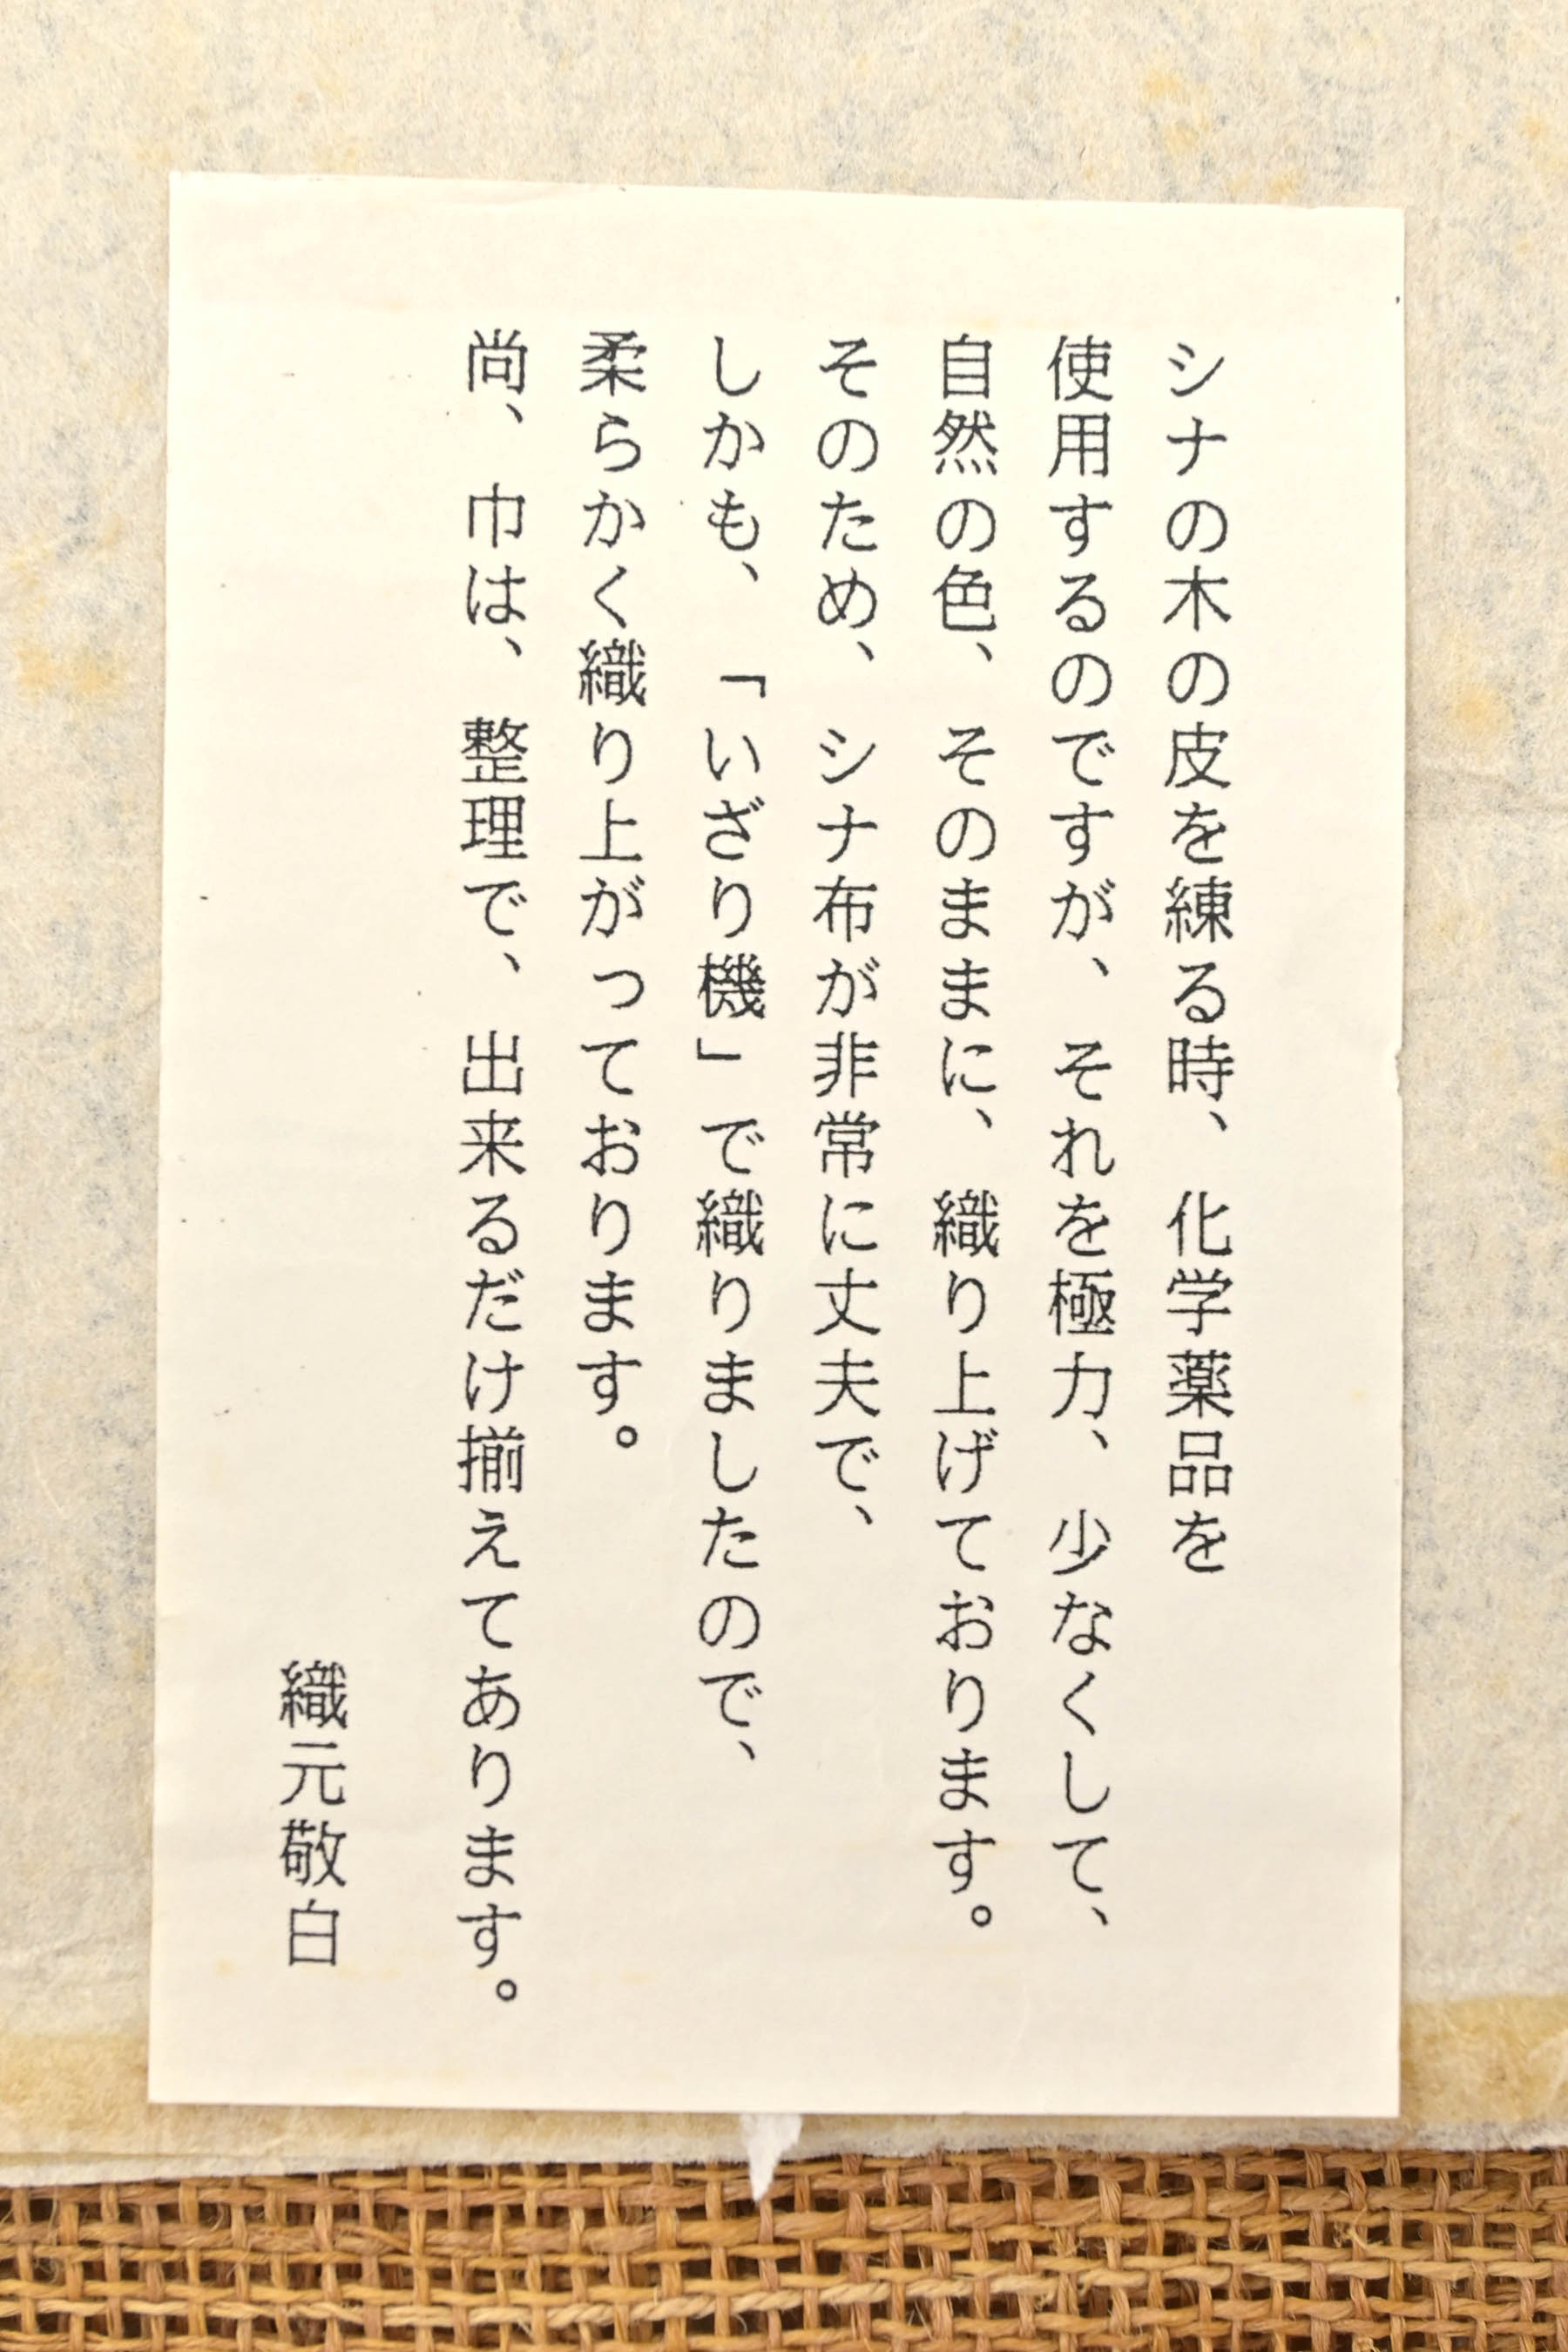 シナの木の皮を練る時、化学薬品を
使用するのですが、それを極力、少なくして、
自然の色、そのままに、織り上げております。
そのため、シナ布が非常に丈夫で、
しかも、「いざり機」で織りましたので、
柔らかく織り上がっております。
尚、巾は、整理で、出来るだけ揃えてあります。
織元敬白